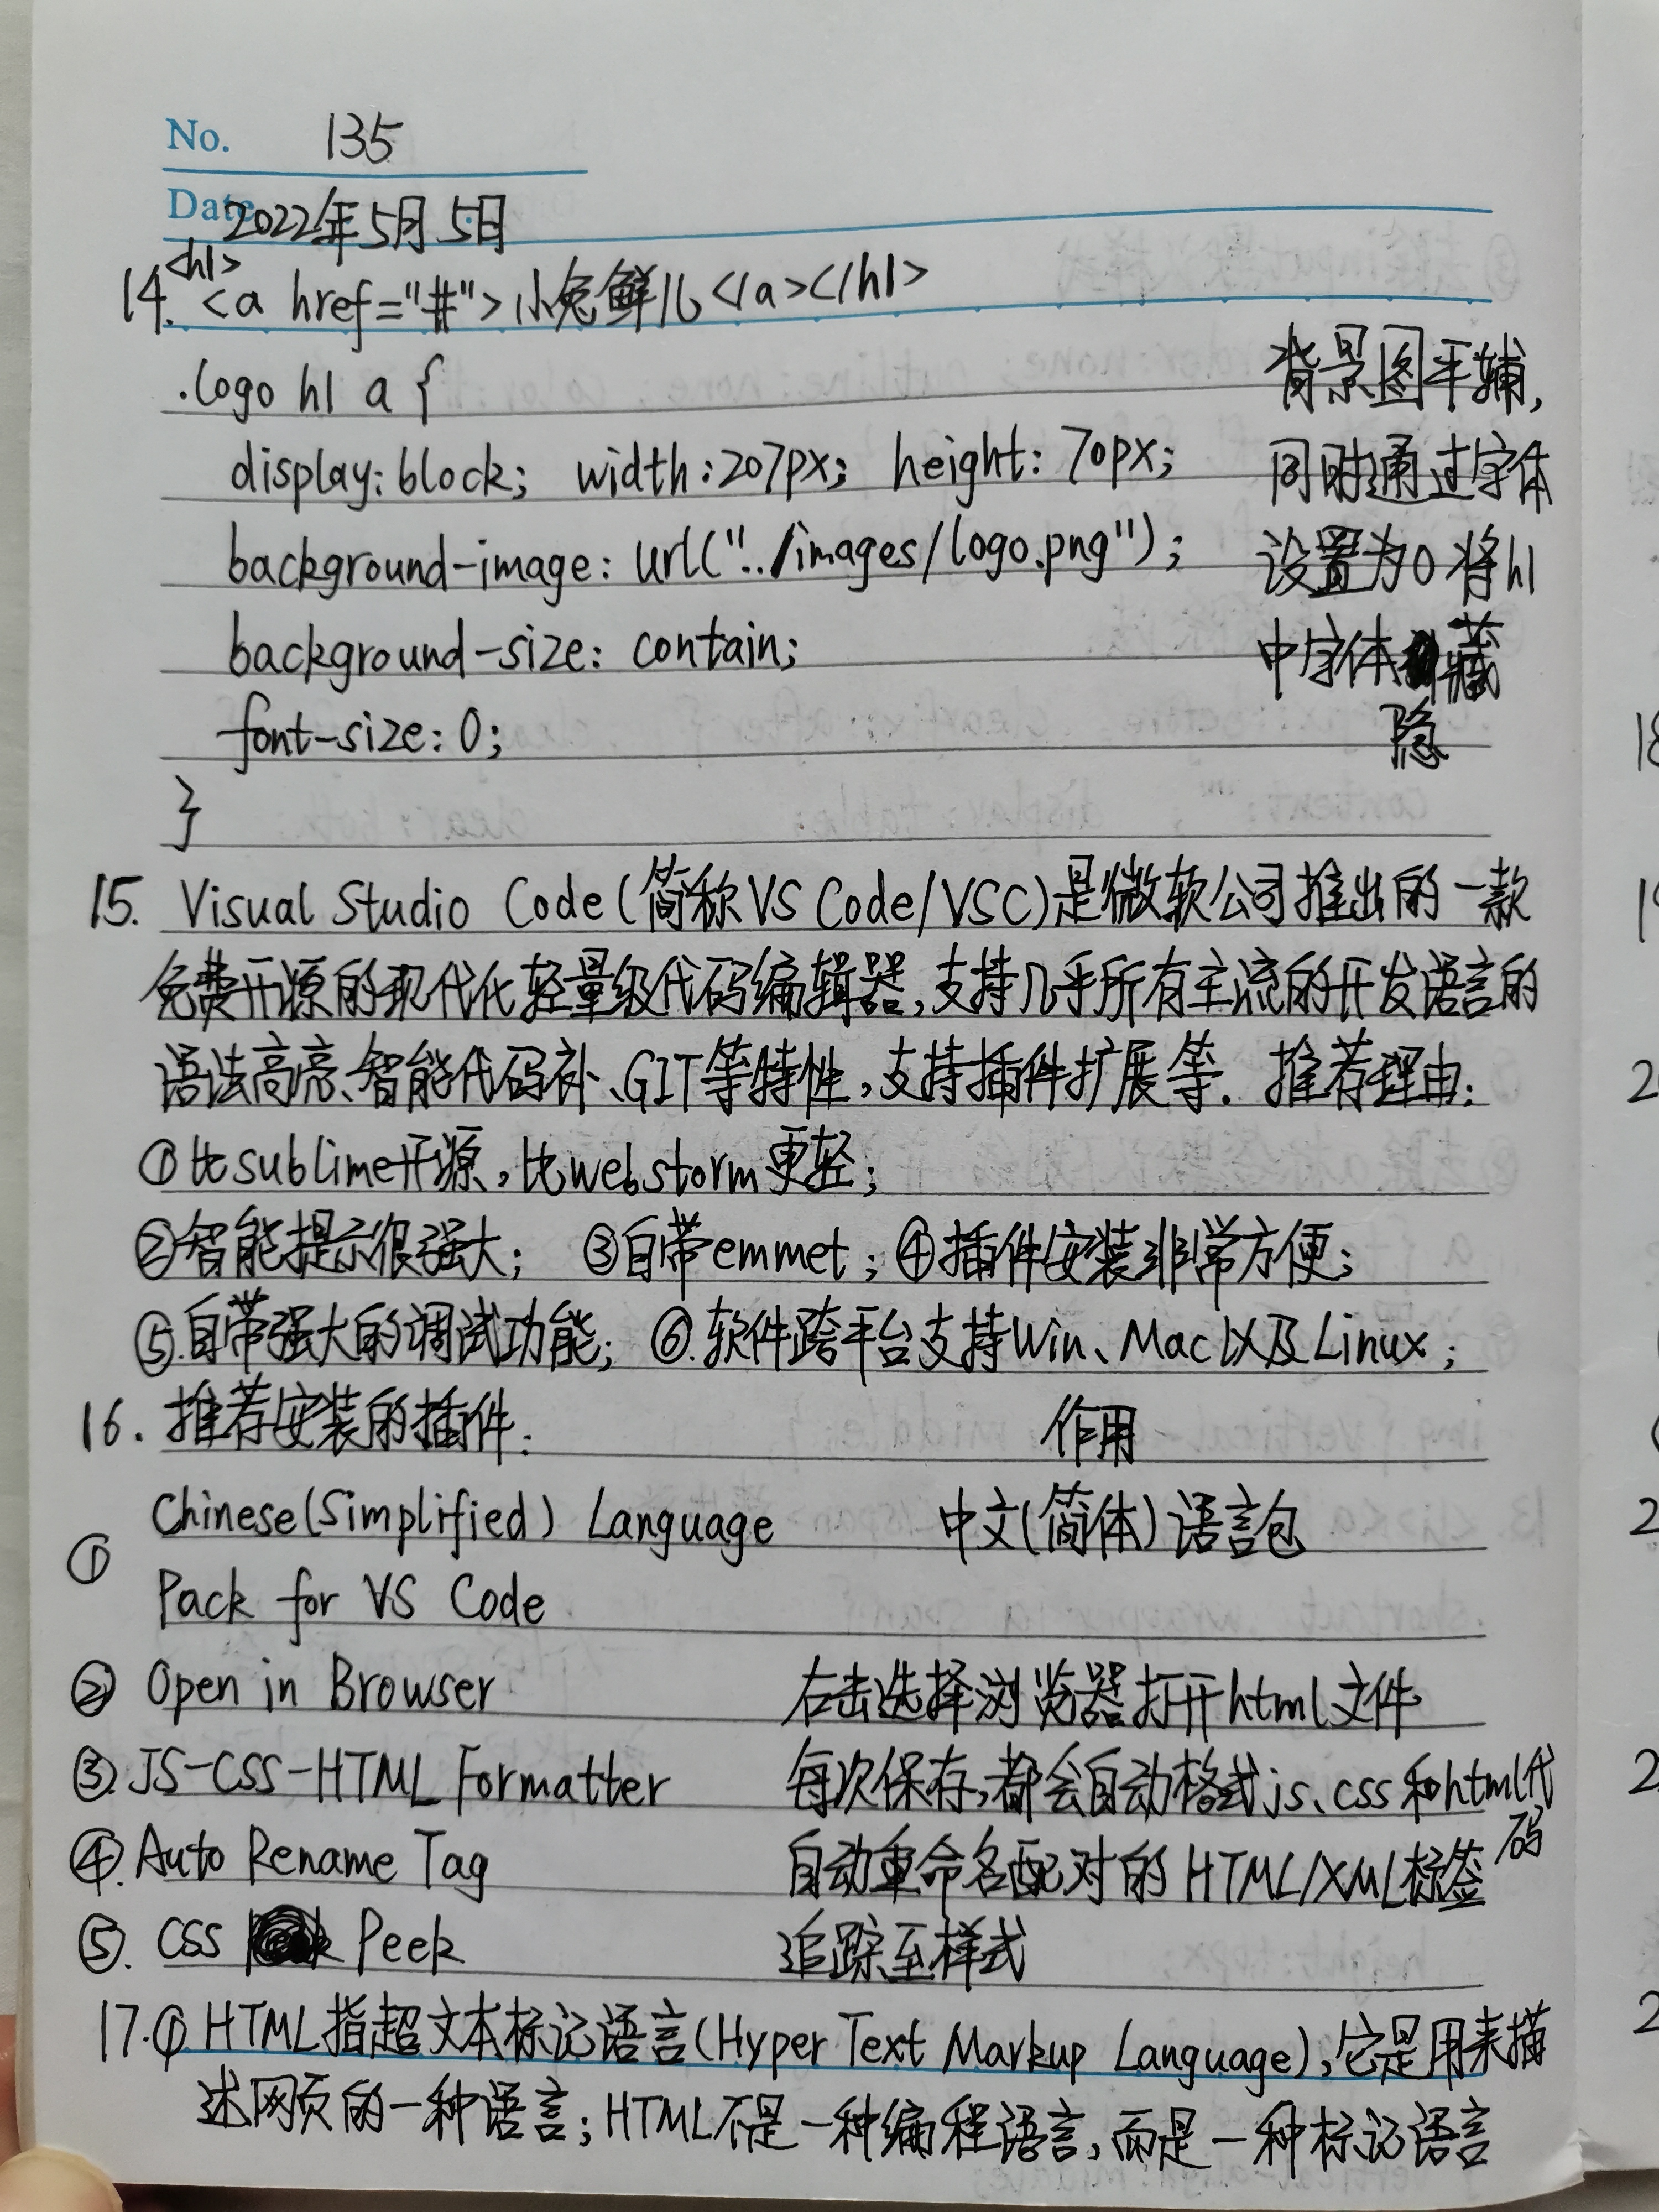 No. 135
Date 2022年5月5日
<h1>
14. <a href="#">小兔鲜儿</a></h1>
.logo h1 a {
display:block; width:207px; height:70px;
background-image: url("../images/logo.png");
background-size: contain;
font-size: 0;
}
背景图平铺,
同时通过字体
设置为0将h1
中字体藏
隐
15. Visual Studio Code(简称VS Code/VSC)是微软公司推出的一款
免费开源的现代化轻量级代码编辑器,支持几乎所有主流的开发语言的
语法高亮、智能代码补、GIT等特性,支持插件扩展等. 推荐理由:
①比sublime开源,比webstorm更轻;
②智能提示很强大; ③自带emmet; ④插件安装非常方便;
⑤.自带强大的调试功能; ⑥.软件跨平台支持Win、Mac以及Linux;
16. 推荐安装的插件: 作用
① Chinese(Simplified) Language 中文(简体)语言包
Pack for VS Code
② Open in Browser 右击选择浏览器打开html文件
③.JS-CSS-HTML Formatter 每次保存,都会自动格式js、css和html代
码
④.Auto Rename Tag 自动重命名配对的HTML/XML标签
⑤. CSS Peek 追踪至样式
17.① HTML指超文本标记语言(Hyper Text Markup Language),它是用来描
述网页的一种语言;HTML不是一种编程语言,而是一种标记语言